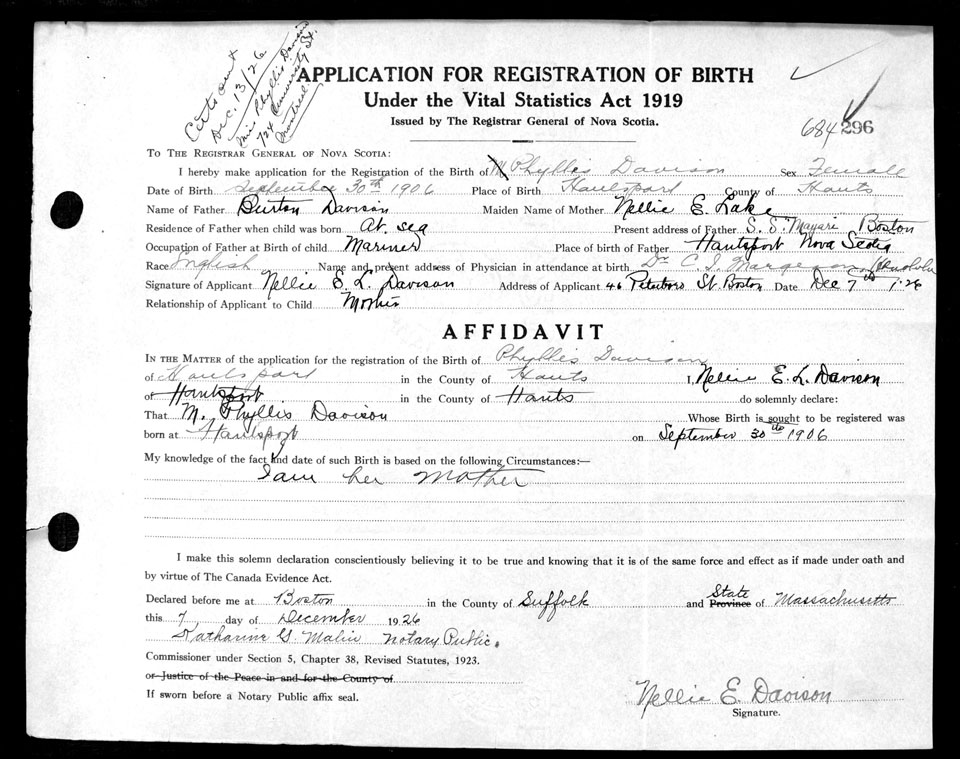 Certs sent
Dec. 13/26
Miss Phyllis Davison
724 University St.
Montreal
APPLICATION FOR REGISTRATION OF BIRTH
Under the Vital Statistics Act 1919
Issued by The Registrar General of Nova Scotia.
684 296
TO THE REGISTRAR GENERAL OF NOVA SCOTIA:
I hereby make application for the Registration of the Birth of M Phyllis Davison Sex Female
Date of Birth September 30th 1906 Place of Birth Hantsport County of Hants
Name of Father Burton Davison Maiden Name of Mother Nellie E. Lake
Residence of Father when child was born At sea Present address of Father S. S. Mayari Boston
Occupation of Father at Birth of child Mariner Place of birth of Father Hantsport Nova Scotia
Race English Name and present address of Physician in attendance at birth Dr C. I. Margeson
Signature of Applicant Nellie E. L. Davison Address of Applicant 46 Peterboro St. Boston Date Dec 7th 1926
Relationship of Applicant to Child Mother
AFFIDAVIT
IN THE MATTER of the application for the registration of the Birth of Phyllis Davison
of Hantsport in the County of Hants I, Nellie E. L. Davison
of Hantsport in the County of Hants do solemnly declare:
That M. Phyllis Davison Whose Birth is sought to be registered was
born at Hantsport on September 30th 1906
My knowledge of the fact and date of such Birth is based on the following Circumstances:—
I am her Mother
I make this solemn declaration conscientiously believing it to be true and knowing that it is of the same force and effect as if made under oath and
by virtue of The Canada Evidence Act.
Declared before me at Boston in the County of Suffolk and State Province of Massachusetts
this 7 day of December 1926
Katharine G. Malin Notary Public.
Commissioner under Section 5, Chapter 38, Revised Statutes, 1923.
or Justice of the Peace in and for the County of
If sworn before a Notary Public affix seal.
Nellie E. Davison
Signature.